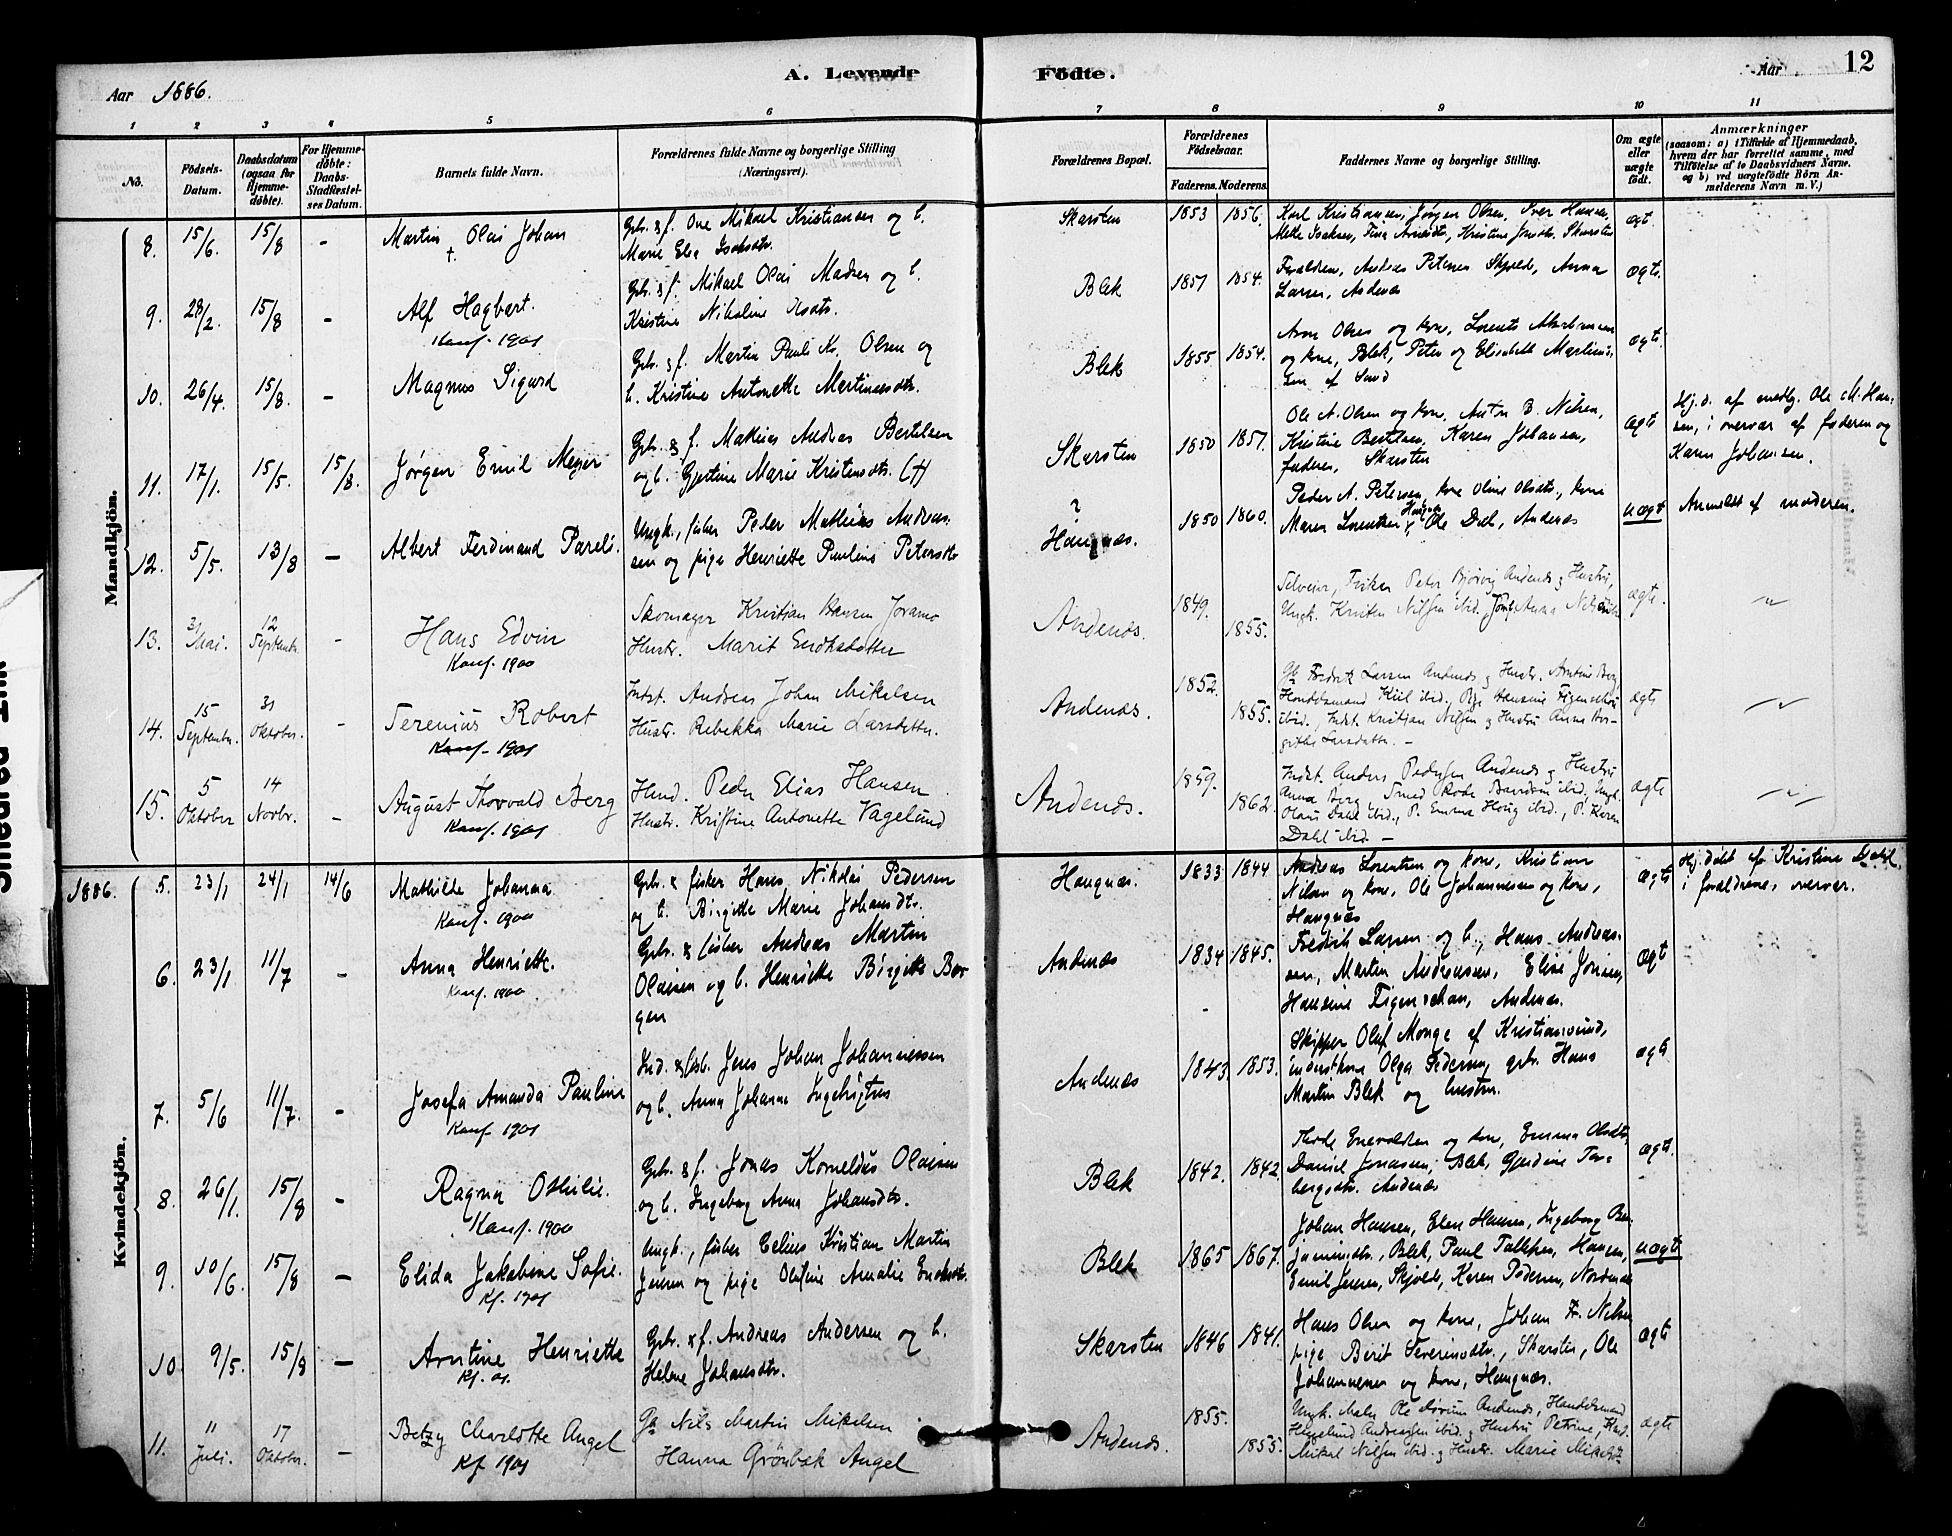 Aar 1886.
A. Levende Födte.
Aar
12
1 2 3 4 5 6 7 8 9 10 11
No.
Födsels-Datum.
Daabsdatum (ogsaa for Hjemmedöbte).
For Hjemmedöbte: Daabs-Stadfæstelses Datum.
Barnets fulde Navn.
Forældrenes fulde Navne og borgerlige Stilling (Næringsvei).
Forældrenes Bopæl.
Forældrenes Födselsaar.
Faderens. Moderens.
Faddernes Navne og borgerlige Stilling.
Om ægte eller uægte födt.
Anmærkninger (saasom: a) i Tilfælde af Hjemmedaab, hvem der har forrettet samme, med Tilföielse af to Daabsvidners Navne, og b) ved uægtefödte Börn Anmelderens Navn m. V.)
Mandkjön.
8. 15/6. 15/8 - Martin Olai Johan †. Gbr. & f. Ove Mikael Kristiansen og h. Marie Elea Isaksdtr. Skarsten 1853 1856. Karl Kristiansen, Jørgen Olsen, Iver Hansen, Mette Isaksen, Kristine Skarsten ægt.
9. 28/2. 15/8 - Alf Hagbart. Konf. 1901 Gbr. & f. Mikael Olai Madsen og h. Kristine Nikoline Blek 1857 1854. Forældrene, Andreas Petersen Skjold, Anna Larsen, Andenæs ægte.
10. 26/4. 15/8. - Magnus Sigurd Gbr. & f. Martin Pauli Kr. Olsen og h. Kristine Antonette Martinusdtr. Blek 1855 1854. Arne Olsen og kone, Lorents og kone, Blek, Peter og Elisabeth af ægte.
11. 17/1. 15/5. 15/8. Jørgen Emil Meyer Gbr. & f. Mathias Andreas Bertelsen og h. Gjertine Marie Kristensdtr. (†) Skarsten 1850 1857. Ole A. Olsen og kone, Anton B. Nilsen, Kristine Bertelsen, Karen Johansen, faderen, Skarsten ægt Hj. d. af Ole M. Hansen, i overvær af faderen og Karen Johansen.
12. 5/5. 13/8 - Albert Ferdinand Pareli. Ungk., fisker Peder Mathias Andreassen og pige Henriette Pauline Petersdtr ? Haugnæs. 1850 1860. Peder A. Petersen, kone Oline Olsdtr., kone Maren Lorentzen Haugnæs, Ole Dal, Andenæs uægt Anmeldt af moderen.
13. 31 Mai. 12 Septembr. - Hans Edvin Konf. 1900 Skomager Kristian Hansen Hustr. Marit Andenæs. 1849. 1855. Peter Andenæs & Hustru, Ungk. Kristen Nilssen ibid. Anna ægte. -"-
14. 15 Septembr. 31 Oktober. - Serenius Robert Konf. 1901 Indst. Andreas Johan Mikalsen Hustr. Rebekka Marie Larsdatter. Andenæs. 1852. 1855. Fredrik Larsen Andenæs & Hustr. Handelsmand Kiil ibid. Pige Hansine Figenschou ibid., Indst. Kristian Nilsen & Hustru Anne Larsdatter. - ægte -"-
15. 5 Oktober 14 Novbr. - August Thorvald Berg Konf. 1901 Hand. Peder Elias Hansen Hustr. Kristine Antonette Vagelund Andenæs. 1859. 1862. Indst. Anders Pedersen Andenæs & Hustru Anna Berg, Smed ibid., Ungk. Olaus Dahl ibid., P. Emma Houg ibid., P. Karen Dahl ibid. - ægte -"-
1886.
Kvindekjön.
5. 23/1 24/1 14/6 Mathilde Johanna Konf. 1900 Gbr. & fisker Hans Nikolai Pedersen og h. Birgitte Marie Johansdtr. Haugnæs. 1833 1844 Andreas Lorentsen og kone, Kristian Nilsen og kone, Ole Johannesen og kone, Haugnæs ægte Hj. døbt af Kristine Dahl i forældrenes overvær.
6. 23/1 11/7 - Anna Henriette. Konf. 1900 Gbr. & fisker Andreas Martin Olaisen og h. Henriette Birgitte Borgen Andenæs 1834 1845. Fredrik Larsen og h., Hans Andreassen, Martin Andreassen, Elise Jensen, Hansine Figenschau, Andenæs. ægt
7. 5/6 11/7. - Josefa Amanda Pauline Konf 1901 Ind. & fisk. Jens Johan Johannessen og h. Anna Johanna Ingebrigtsen Andenæs 1843. 1853. Skipper Oluf Monge af Kristiansund, inderstkone Olga Pedersen, gbr. Hans Martin Blek og hustru. ægt.
8. 26/1. 15/8 - Ragna Othilie. Konf. 1900 Gbr. & f. Jonas Kornelius Olaisen og h. Ingeborg Anna Johansdtr. Blek 1842. 1842. Enevoldsen og kone, Emma Olsdtr, Daniel Jonassen, Blek, Gjerdine Andenæs ægt.
9. 10/6. 15/8 - Elida Jakobine Sofie. Kf. 1901 Ungk., fisker Celius Kristian Martin Jensen og pige Olufine Amalie Blek 1865 1867. Johan Hansen, Elen Hansen, Ingeborg Benjaminsdtr., Blek, Paul Hansen, Emil Jensen, Skjolde, Karen Pedersen, uægt
10 9/5. 15/8 - Arntine Henriette Kf. 01. Gbr. & f. Andreas Andersen og h. Helene Johansdtr. Skarsten 1846 1841. Hans Olsen og kone, Johan Fr. Nilsen pige Berit Severinsdtr., Skarsten, Ole Johannesen og kone, Haugnæs. ægte
11. 11 Juli. 17 Oktober. - Betzy Charlotte Angel Kf 1901 Nils Martin Mikelsen Hanna Grönbæk Angel Andenæs. 1855. 1855. Ungk. Maler Ole Andenæs, Handelsmand Hegelund Andreassen ibid. & Hustru Petrine, Mikal Nilssen ibid. & Hustr. Marie ægte